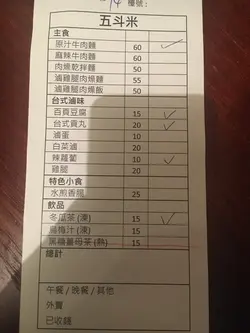 14 檯號：
五斗米
主食
原汁牛肉麵 60 ✓
麻辣牛肉麵 60
肉燥乾拌麵 50
滷雞腿肉燥麵 55
滷雞腿肉燥飯 50
台式滷味
百頁豆腐 15 ✓
台式貢丸 20 ✓
滷蛋 10
白菜滷 20
辣蘿蔔 10 ✓
雞腿 20
特色小食
水煎香腸 25
飲品
冬瓜茶 (凍) 15 ✓
烏梅汁 (凍) 15
黑糖薑母茶 (熱) 15
總計
午餐 / 晚餐 / 其他
外賣
已收錢